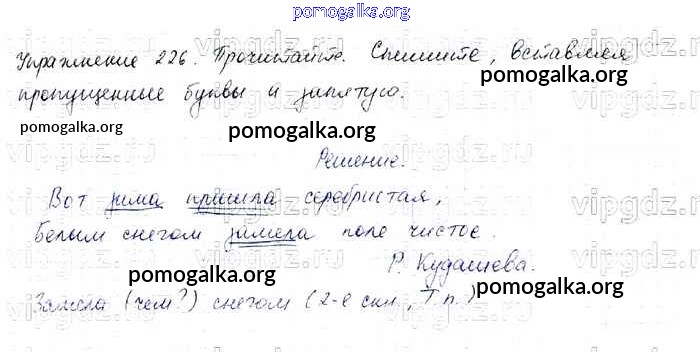 pomogalka.org
Упражнение 226. Прочитайте. Спишите, вставляя
pomogalka.org
пропущенные буквы и запятую.
pomogalka.org
pomogalka.org
Решение.
vipgdz.ru
Вот зима пришла серебристая,
Белым снегом замела поле чистое.
Р. Кудашева.
pomogalka.org
pomogalka.org
Замела (чем?) снегом (2-е скл., Т.п.)